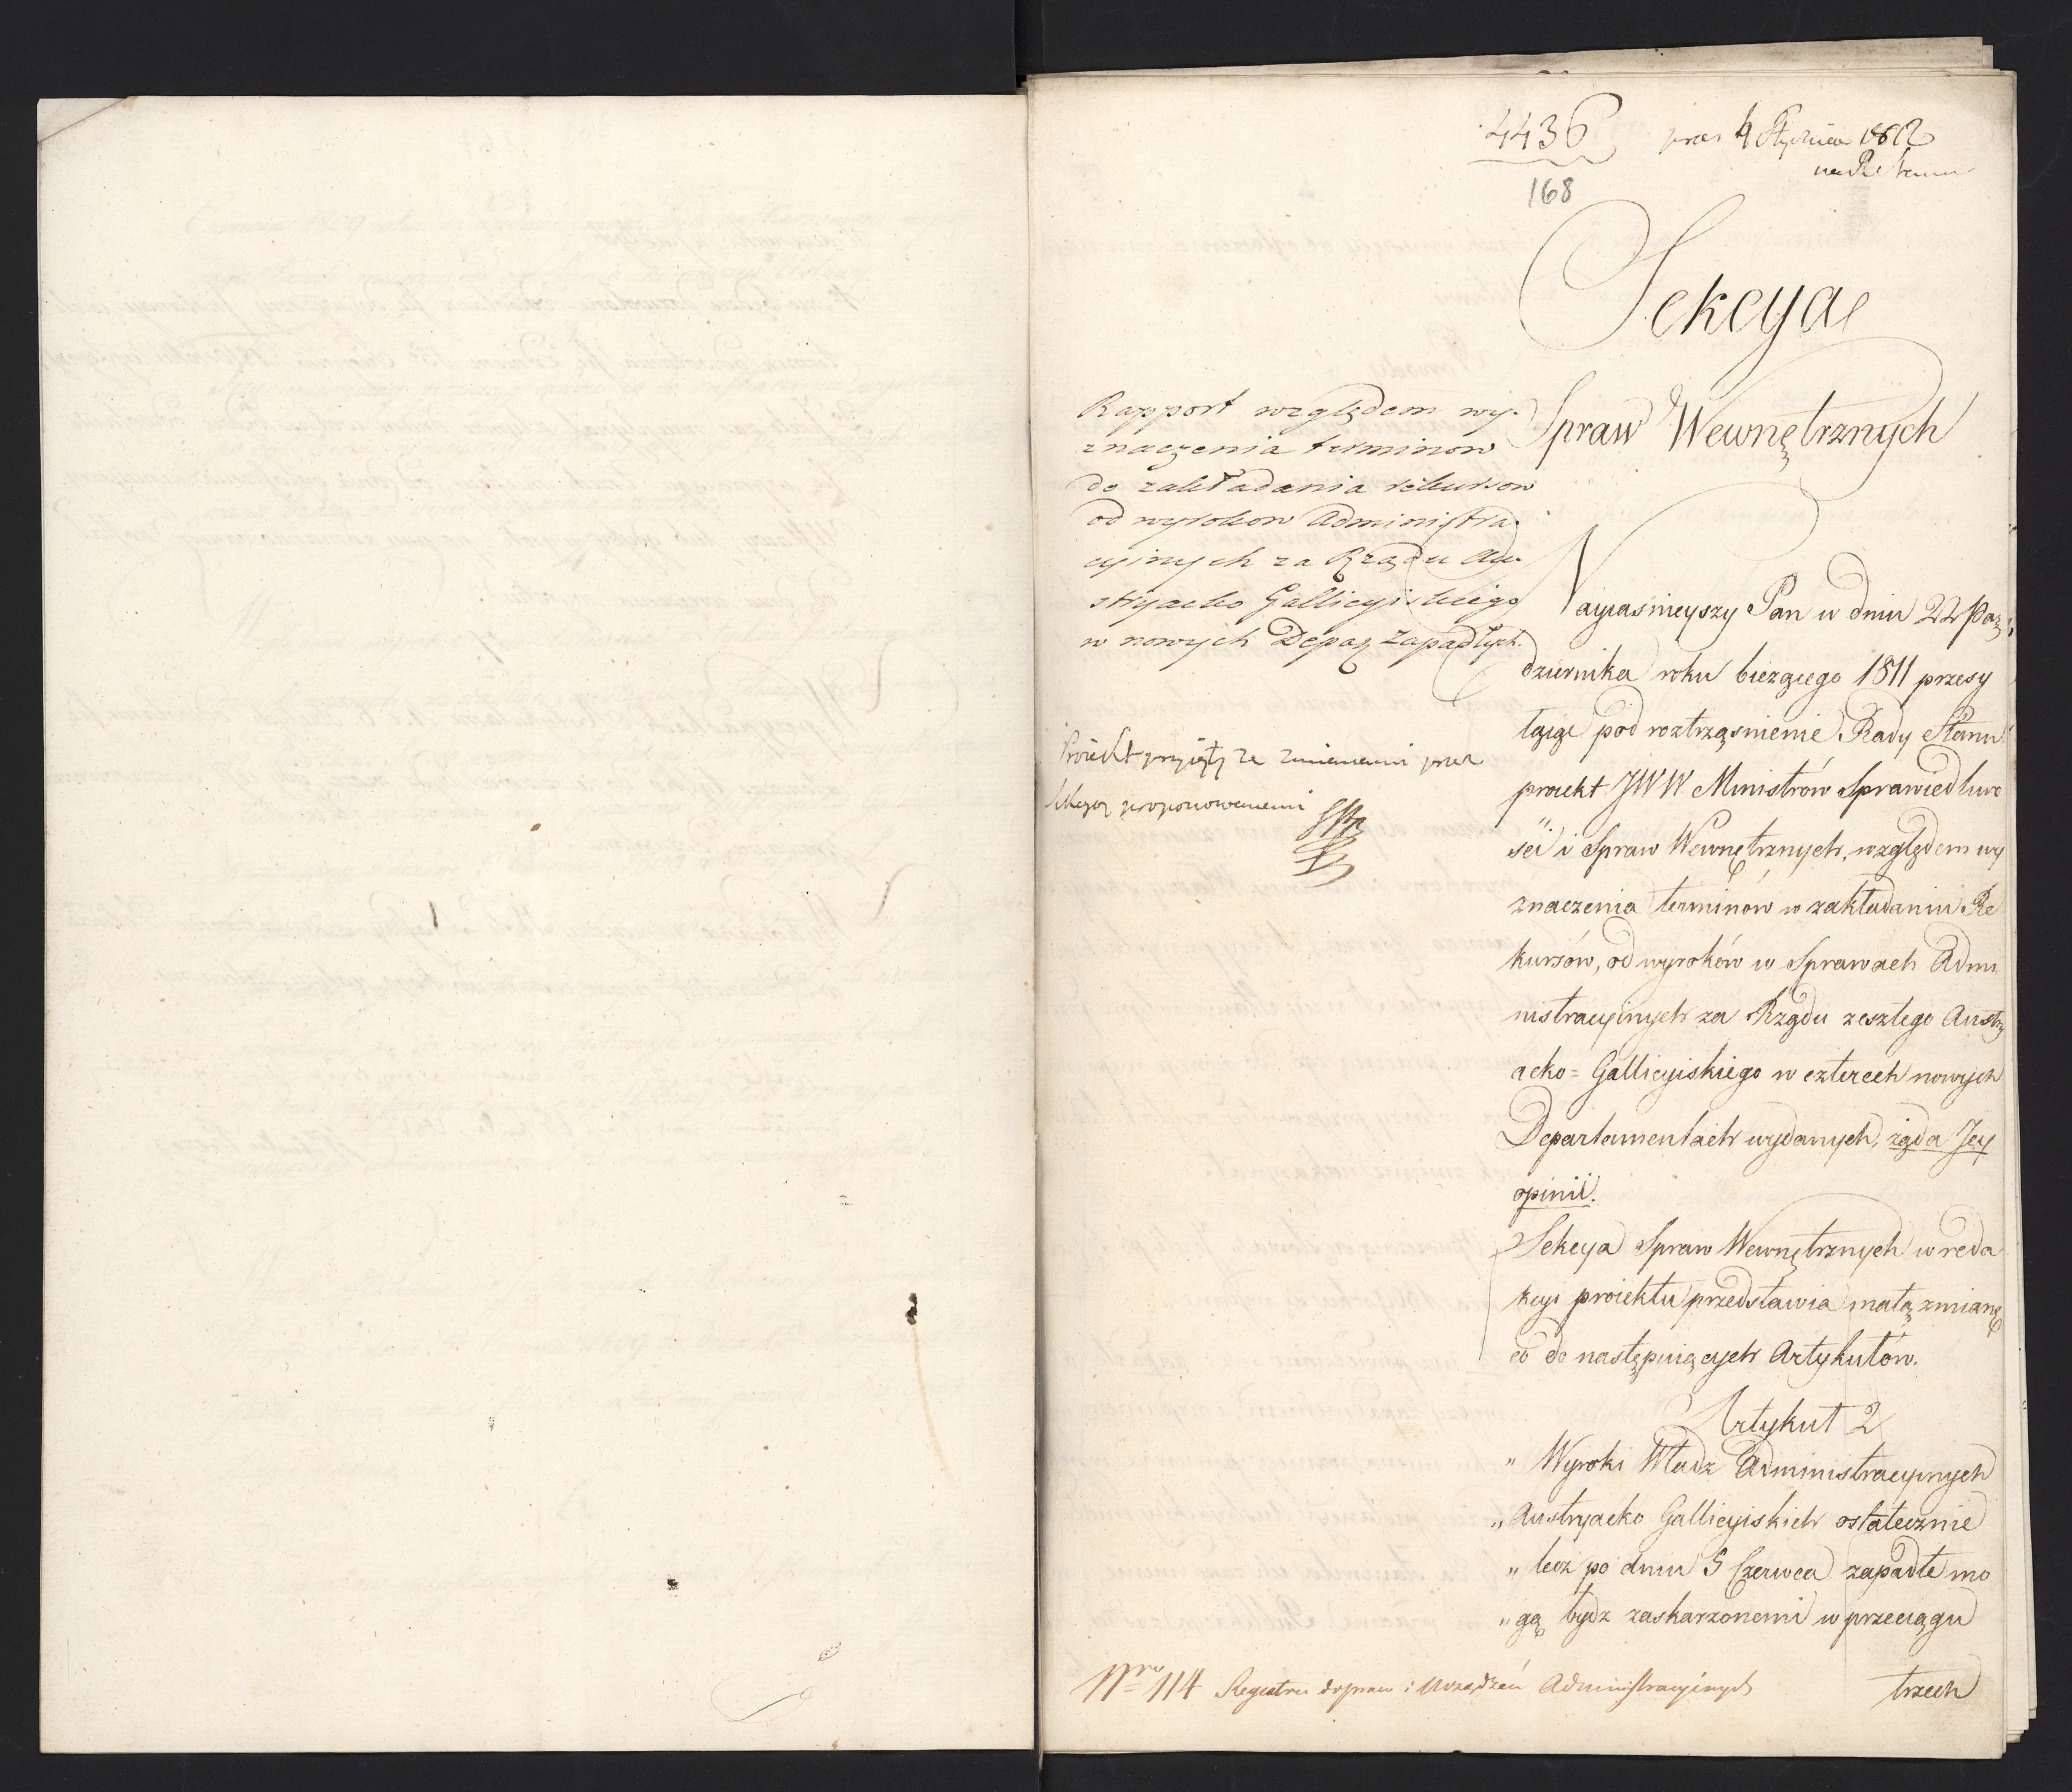 4436
4 Stycznia 1812
168
Sekcya
Spraw Wewnętrznych
Rapport względem wy-
znaczenia terminow
do zakładania rekursow
od wyrokow Administra-
cyinych za Rządu Au-
stryacko Gallicyiskiego
w nowych Depar: zapadłych.
Proiekt przyięty ze zmianami przez
Sekcyą proponowanemi
Nayiaśnieyszy Pan w dniu 22 Paź
dziernika roku bieżącego 1811 przesy
łaiąc pod roztrząśnienie Rady Stanu
proiekt JWW Ministrów Sprawiedliwo
ści i Spraw Wewnętrznych, względem wy
znaczenia terminów w zakładaniu Re
kursów, od wyroków w Sprawach Admi
nistracyinych za Rządu zeszłego Austry
acko=Gallicyiskiego w czterech nowych
Departamentach wydanych, żąda Jey
opinii.
Sekcya Spraw Wewnętrznych w reda
kcyi proiektu przedstawia małą zmianę
co do następuiących Artykułów.
Artykuł 2
" Wyroki Władz Administracyinych
" Austryacko Gallicyiskich ostatecznie
" lecz po dniu 5 Czerwca zapadłe mo
" gą bydz zaskarżonemi w przeciągu
trzech
Nro 114 Regestru Spraw i Urządzeń Administracyinych